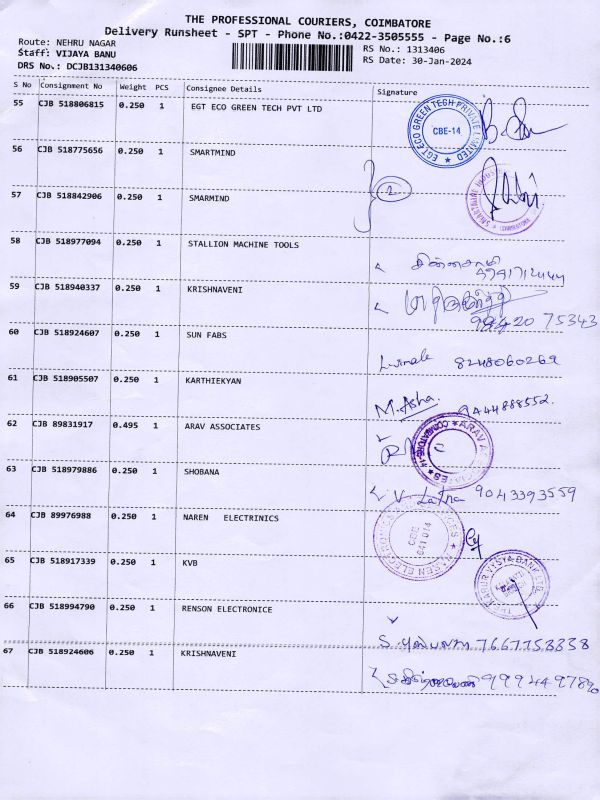 THE PROFESSIONAL COURIERS, COIMBATORE
Delivery Runsheet - SPT - Phone No.:0422-3505555 - Page No.:6
Route: NEHRU NAGAR
Staff: VIJAYA BANU
DRS No.: DCJB131340606
RS No.: 1313406
RS Date: 30-Jan-2024
S No Consignment No Weight PCS Consignee Details Signature
55 CJB 518806815 0.250 1 EGT ECO GREEN TECH PVT LTD
EGT ECO GREEN TECH PRIVATE LIMITED
CBE-14
56 CJB 518775656 0.250 1 SMARTMIND
2
57 CJB 518842906 0.250 1 SMARMIND
58 CJB 518977094 0.250 1 STALLION MACHINE TOOLS
59 CJB 518940337 0.250 1 KRISHNAVENI
75343
60 CJB 518924607 0.250 1 SUN FABS
8248060269
61 CJB 518905507 0.250 1 KARTHIEKYAN
M. Asha 9444888552.
62 CJB 89831917 0.495 1 ARAV ASSOCIATES
63 CJB 518979886 0.250 1 SHOBANA
V. Latha 9043393559
64 CJB 89976988 0.250 1 NAREN ELECTRINICS
CBE
641 014
65 CJB 518917339 0.250 1 KVB
THE KARUR VYSYA BANK LTD
66 CJB 518994790 0.250 1 RENSON ELECTRONICE
7667758838
67 CJB 518924606 0.250 1 KRISHNAVENI